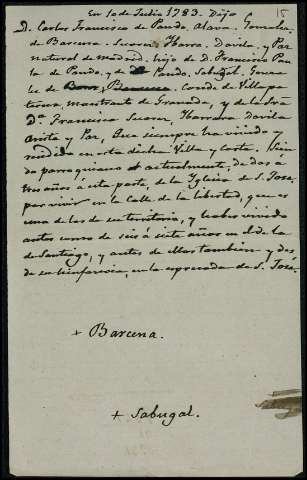 En 10 de Julio 1783. Dijo
15
D. Carlos Francisco de Pando, Alava, Gonzalez
de Barcena, Secorun Ibarra, Davila, y Paz
natural de Madrid. hijo de D. Francisco Pau
la de Pando, y de Pando, Sabugal, Gonza
lez de Barcena. Conde de Villapa
terna, maestrante de Granada, y de la Sra
Dª Francisca Secorun, Ibarra Davila
y Paz, que siempre ha vivido y
residido en esta dicha Villa y Corte. Sien
do parroquiano actualmente, de dos á
tres años á esta parte, de la Iglesia de S. José,
por vivir en la Calle de la Libertad, que es
una de las de su territorio, y haber vivido
antes como de seis á siete años en el de la
de Santiago, y antes de ellos tambien y des
de su infancia, en la expresada de S. José.
+ Barcena.
+ Sabugal.